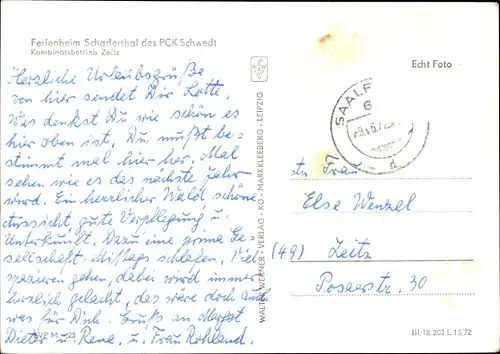 Ferienheim Schaderthal des PCK Schwedt
Kombinatsbetrieb Zeitz
Echt Foto
Herzliche Urlaubsgrüße
von hier sendet Dir Lotte.
Was denkst Du wie schön es
hier oben ist, Du mußt be-
stimmt mal hier her. Mal
sehen wie es das nächste Jahr
wird. Ein herrlicher Wald schöne
Aussicht gute Verpflegung u.
Unterkunft. Dazu eine prima Ge-
sellschaft. Mittags schlafen, viel
spazieren gehen, dabei wird immer
herzlich gelacht, das wäre doch auch
was für Dich. Gruß an Margot
Dieter u. Rena, u. Frau Rohland.
WALTER WERNER - VERLAG - KG - MARKKLEEBERG - LEIPZIG
SAALF
6
d
Frau
Else Wenzel
(49) Zeitz
Posaer str. 30
EVP M -,25
III/18/203 L 13/72